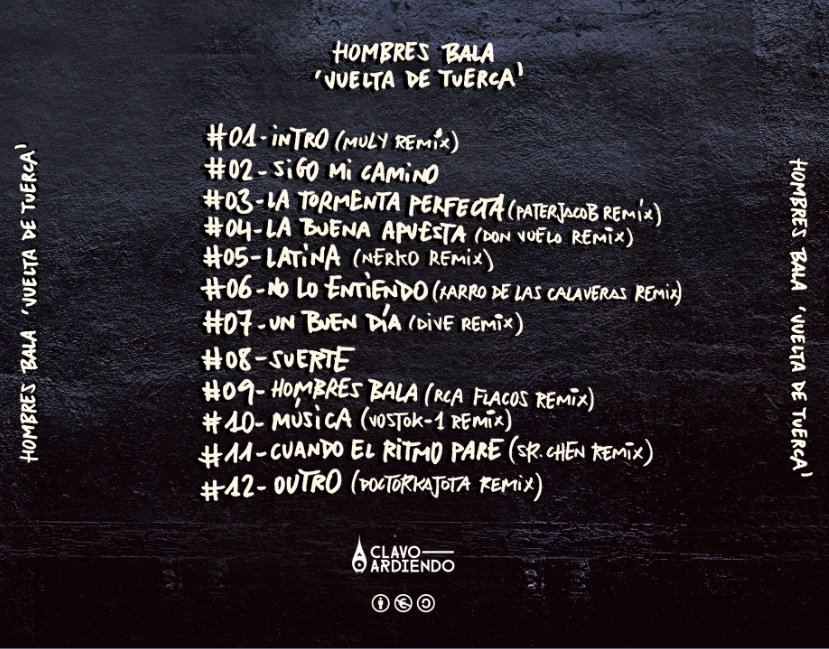 HOMBRES BALA
'VUELTA DE TUERCA'
#01-INTRO (MULY REMIX)
#02-SIGO MI CAMINO
#03-LA TORMENTA PERFECTA (PATERJACOB REMIX)
#04-LA BUENA APUESTA (DON VUELO REMIX)
#05-LATINA (NERKO REMIX)
#06-NO LO ENTIENDO (XARRO DE LAS CALAVERAS REMIX)
#07-UN BUEN DÍA (DIVE REMIX)
#08-SUERTE
#09-HOMBRES BALA (RCA FLACOS REMIX)
#10-MÚSICA (VOSTOK-1 REMIX)
#11-CUANDO EL RITMO PARE (SR. CHEN REMIX)
#12-OUTRO (DOCTORKAJOTA REMIX)
HOMBRES BALA 'VUELTA DE TUERCA'
HOMBRES BALA 'VUELTA DE TUERCA'
CLAVO
ARDIENDO